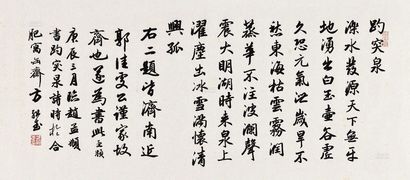 趵突泉
濼水發源天下無平
地湧出白玉壺谷虛
久恐元氣泄歲旱不
愁東海枯雲霧潤
蒸華不注波瀾聲
震大明湖時來泉上
濯塵土冰雪滿懷清
興孤
右二題皆濟南近
郭佳處公謹家故
齊也遂為書此孟頫
庚辰三月臨趙孟頫
書趵突泉詩時於合
肥寓